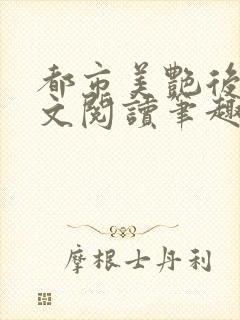 都市美艷後
文閱讀筆趣
摩根士丹利